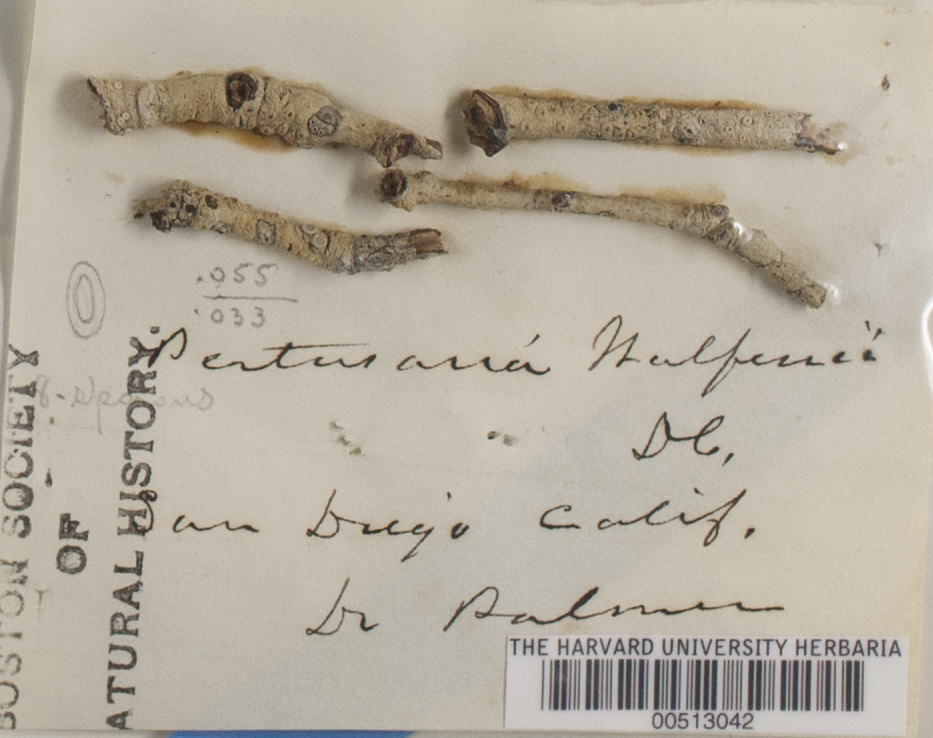 .055
.033
Pertusaria Wulfenii
8-sporous
DC,
San Diego Calif.
Dr Palmer
BOSTON SOCIETY
OF
NATURAL HISTORY.
THE HARVARD UNIVERSITY HERBARIA
00513042